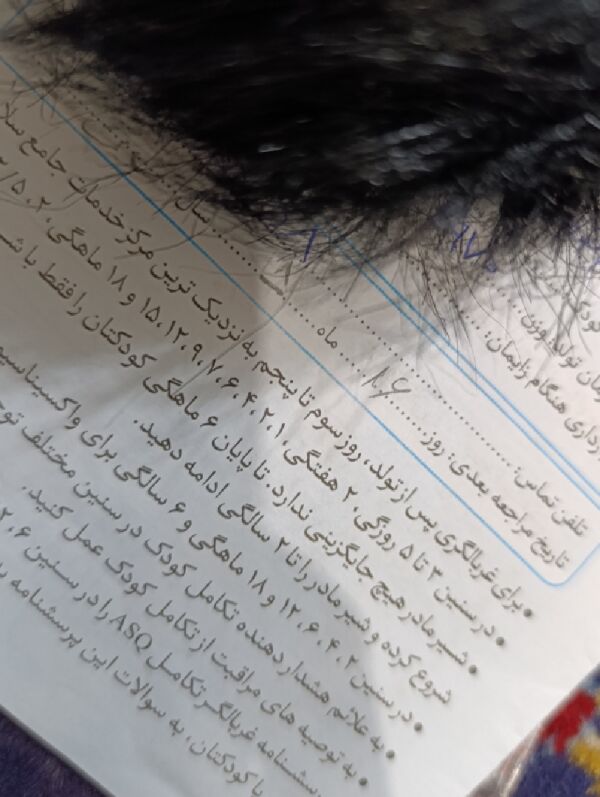 زمان تولد: وزن
بارداری هنگام زایمان:
تلفن تماس:
تاریخ مراجعه بعدی: روز ...... ماه ...... سال
• برای غربالگری پس از تولد، روز سوم تا پنجم به نزدیک ترین مرکز خدمات جامع
• در سنین ۳ تا ۵ روزگی، ۲ هفتگی، ۱، ۲، ۴، ۶، ۷، ۹، ۱۲، ۱۵ و ۱۸ ماهگی، ۲، ۲.۵
• شیر مادر هیچ جایگزینی ندارد. تا پایان ۶ ماهگی کودکتان را فقط با
شروع کرده و شیر مادر را تا ۲ سالگی ادامه دهید.
• در سنین ۲، ۴، ۶، ۱۲ و ۱۸ ماهگی و ۶ سالگی برای واکسیناسیون
• به علائم هشدار دهنده تکامل کودک در سنین مختلف
• به توصیه های مراقبت از تکامل کودک عمل کنید.
پرسشنامه غربالگر تکامل ASQ را در سنین ۶
با کودکتان، به سوالات این پرسشنامه